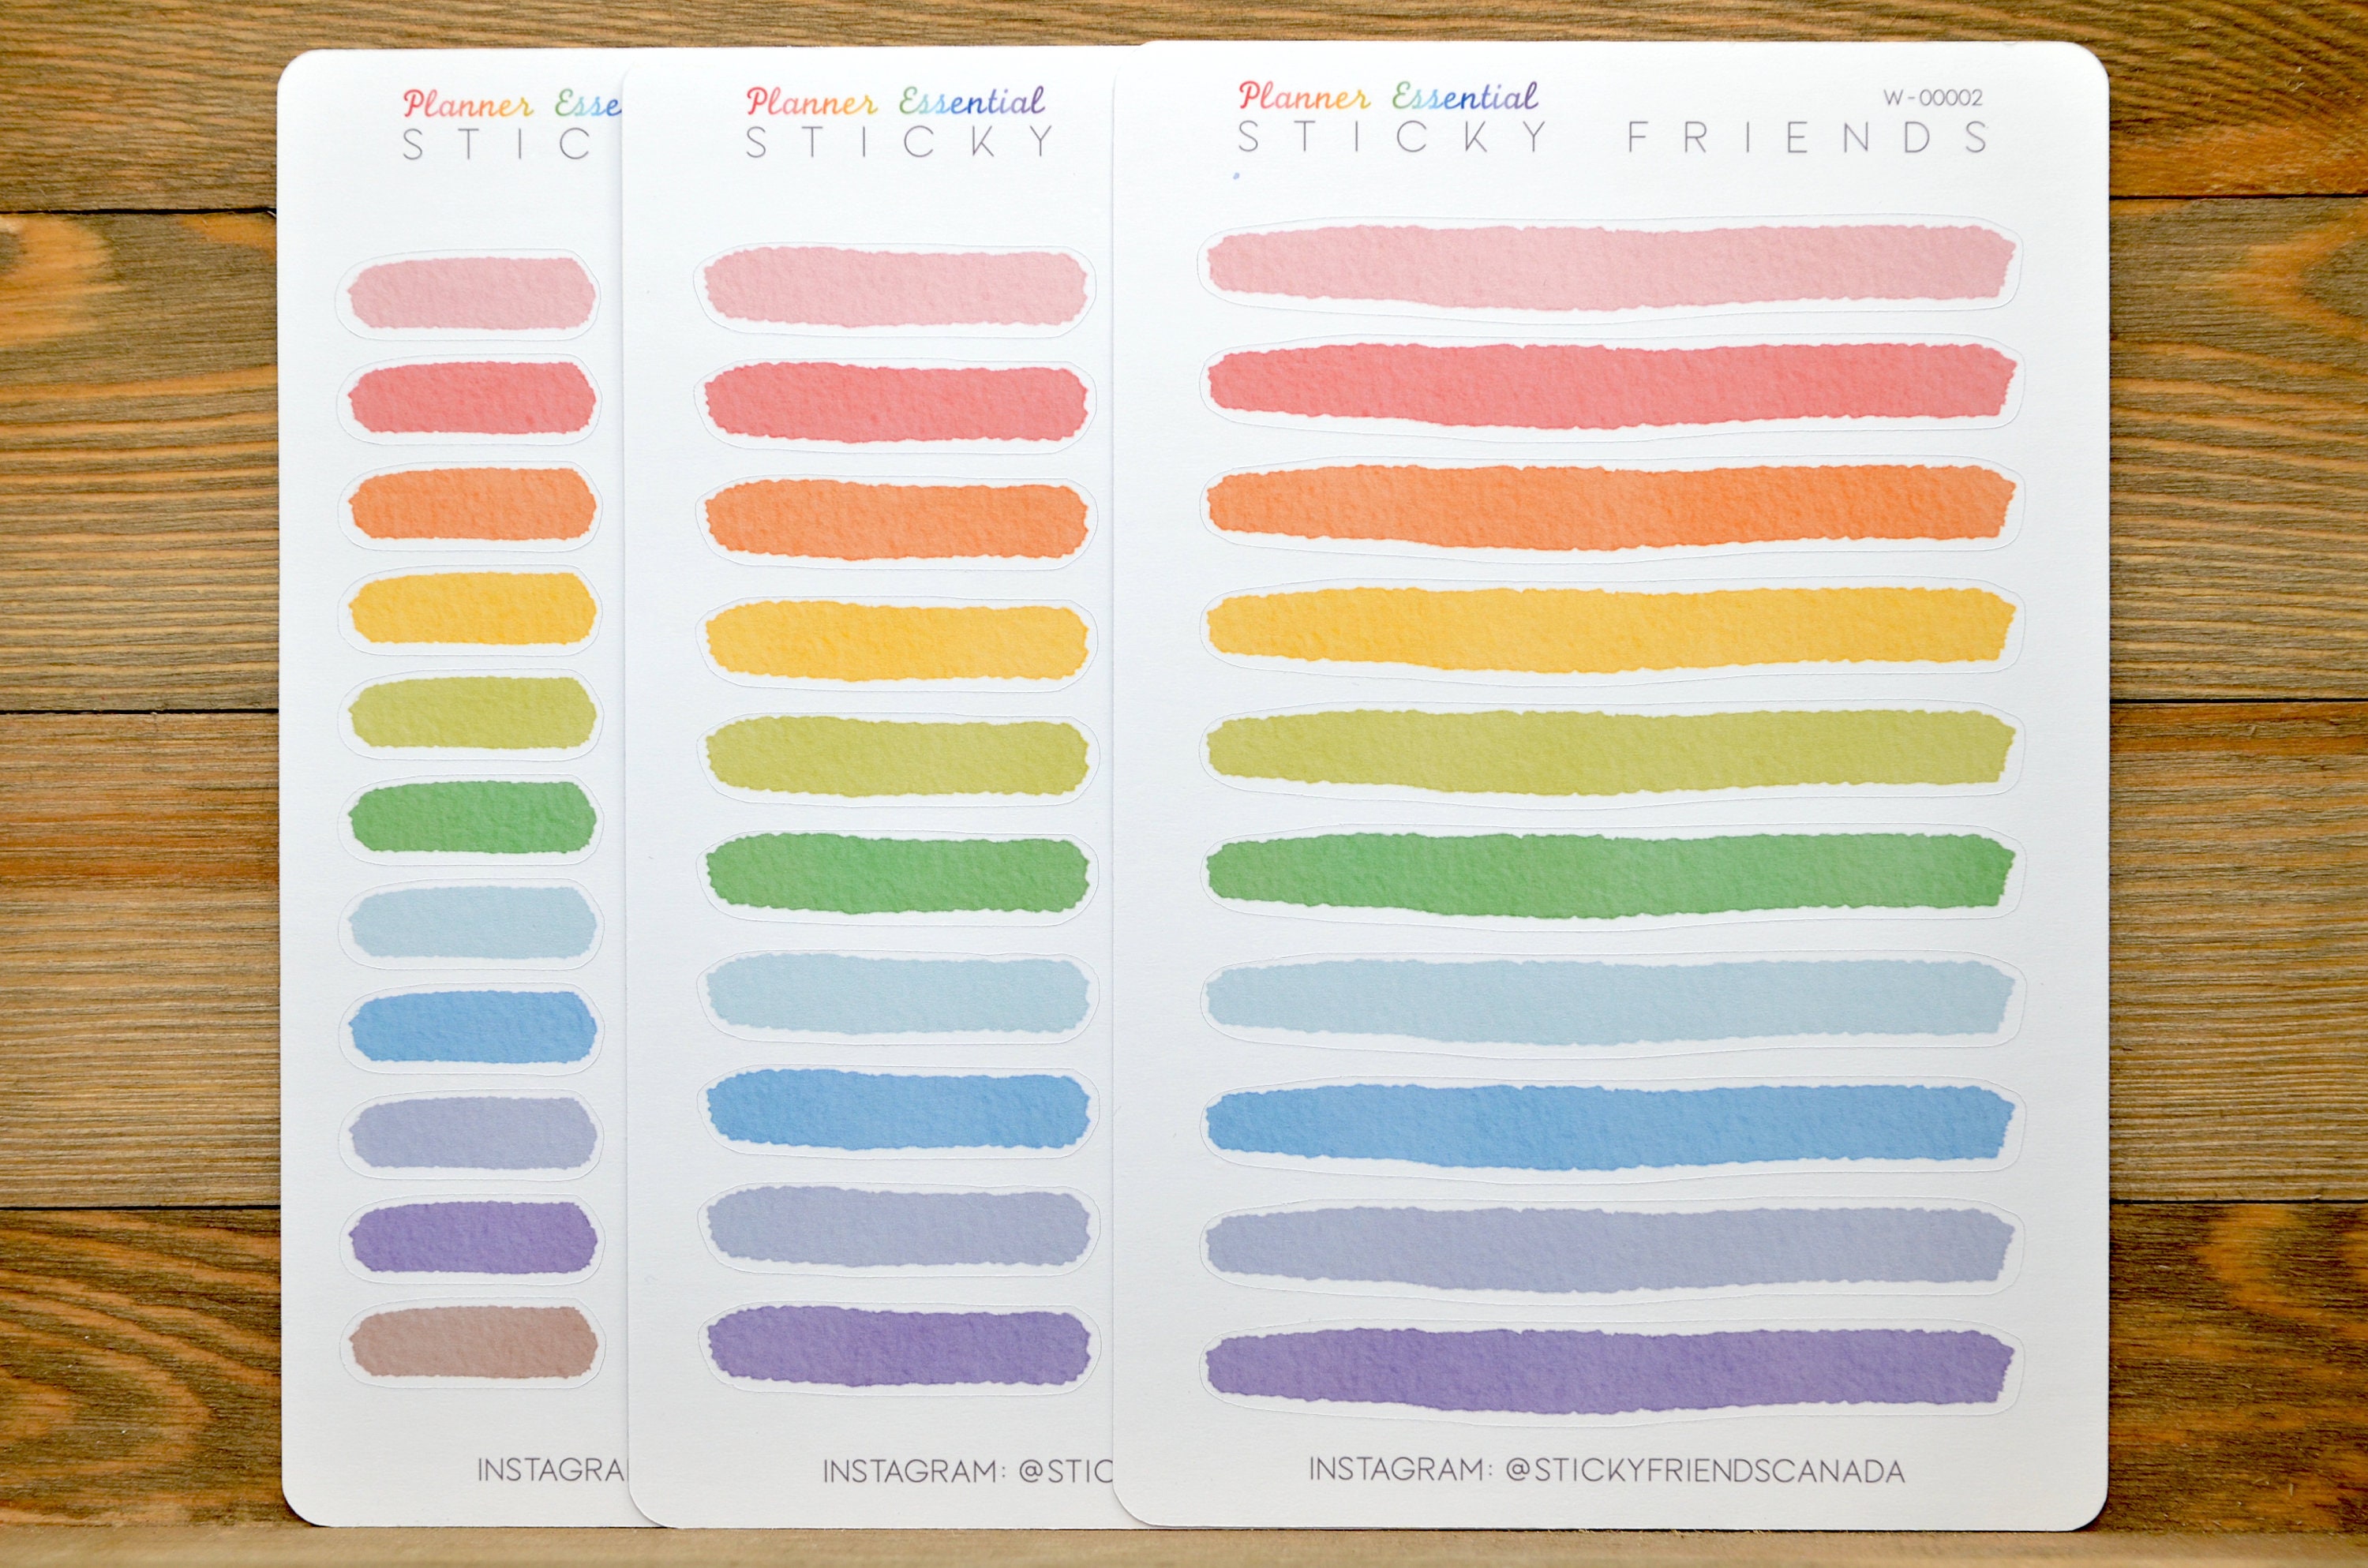 Planner Esse
STIC
INSTAGRA
Planner Essential
STICKY
INSTAGRAM: @STIC
Planner Essential
W-00002
STICKY FRIENDS
INSTAGRAM: @STICKYFRIENDSCANADA